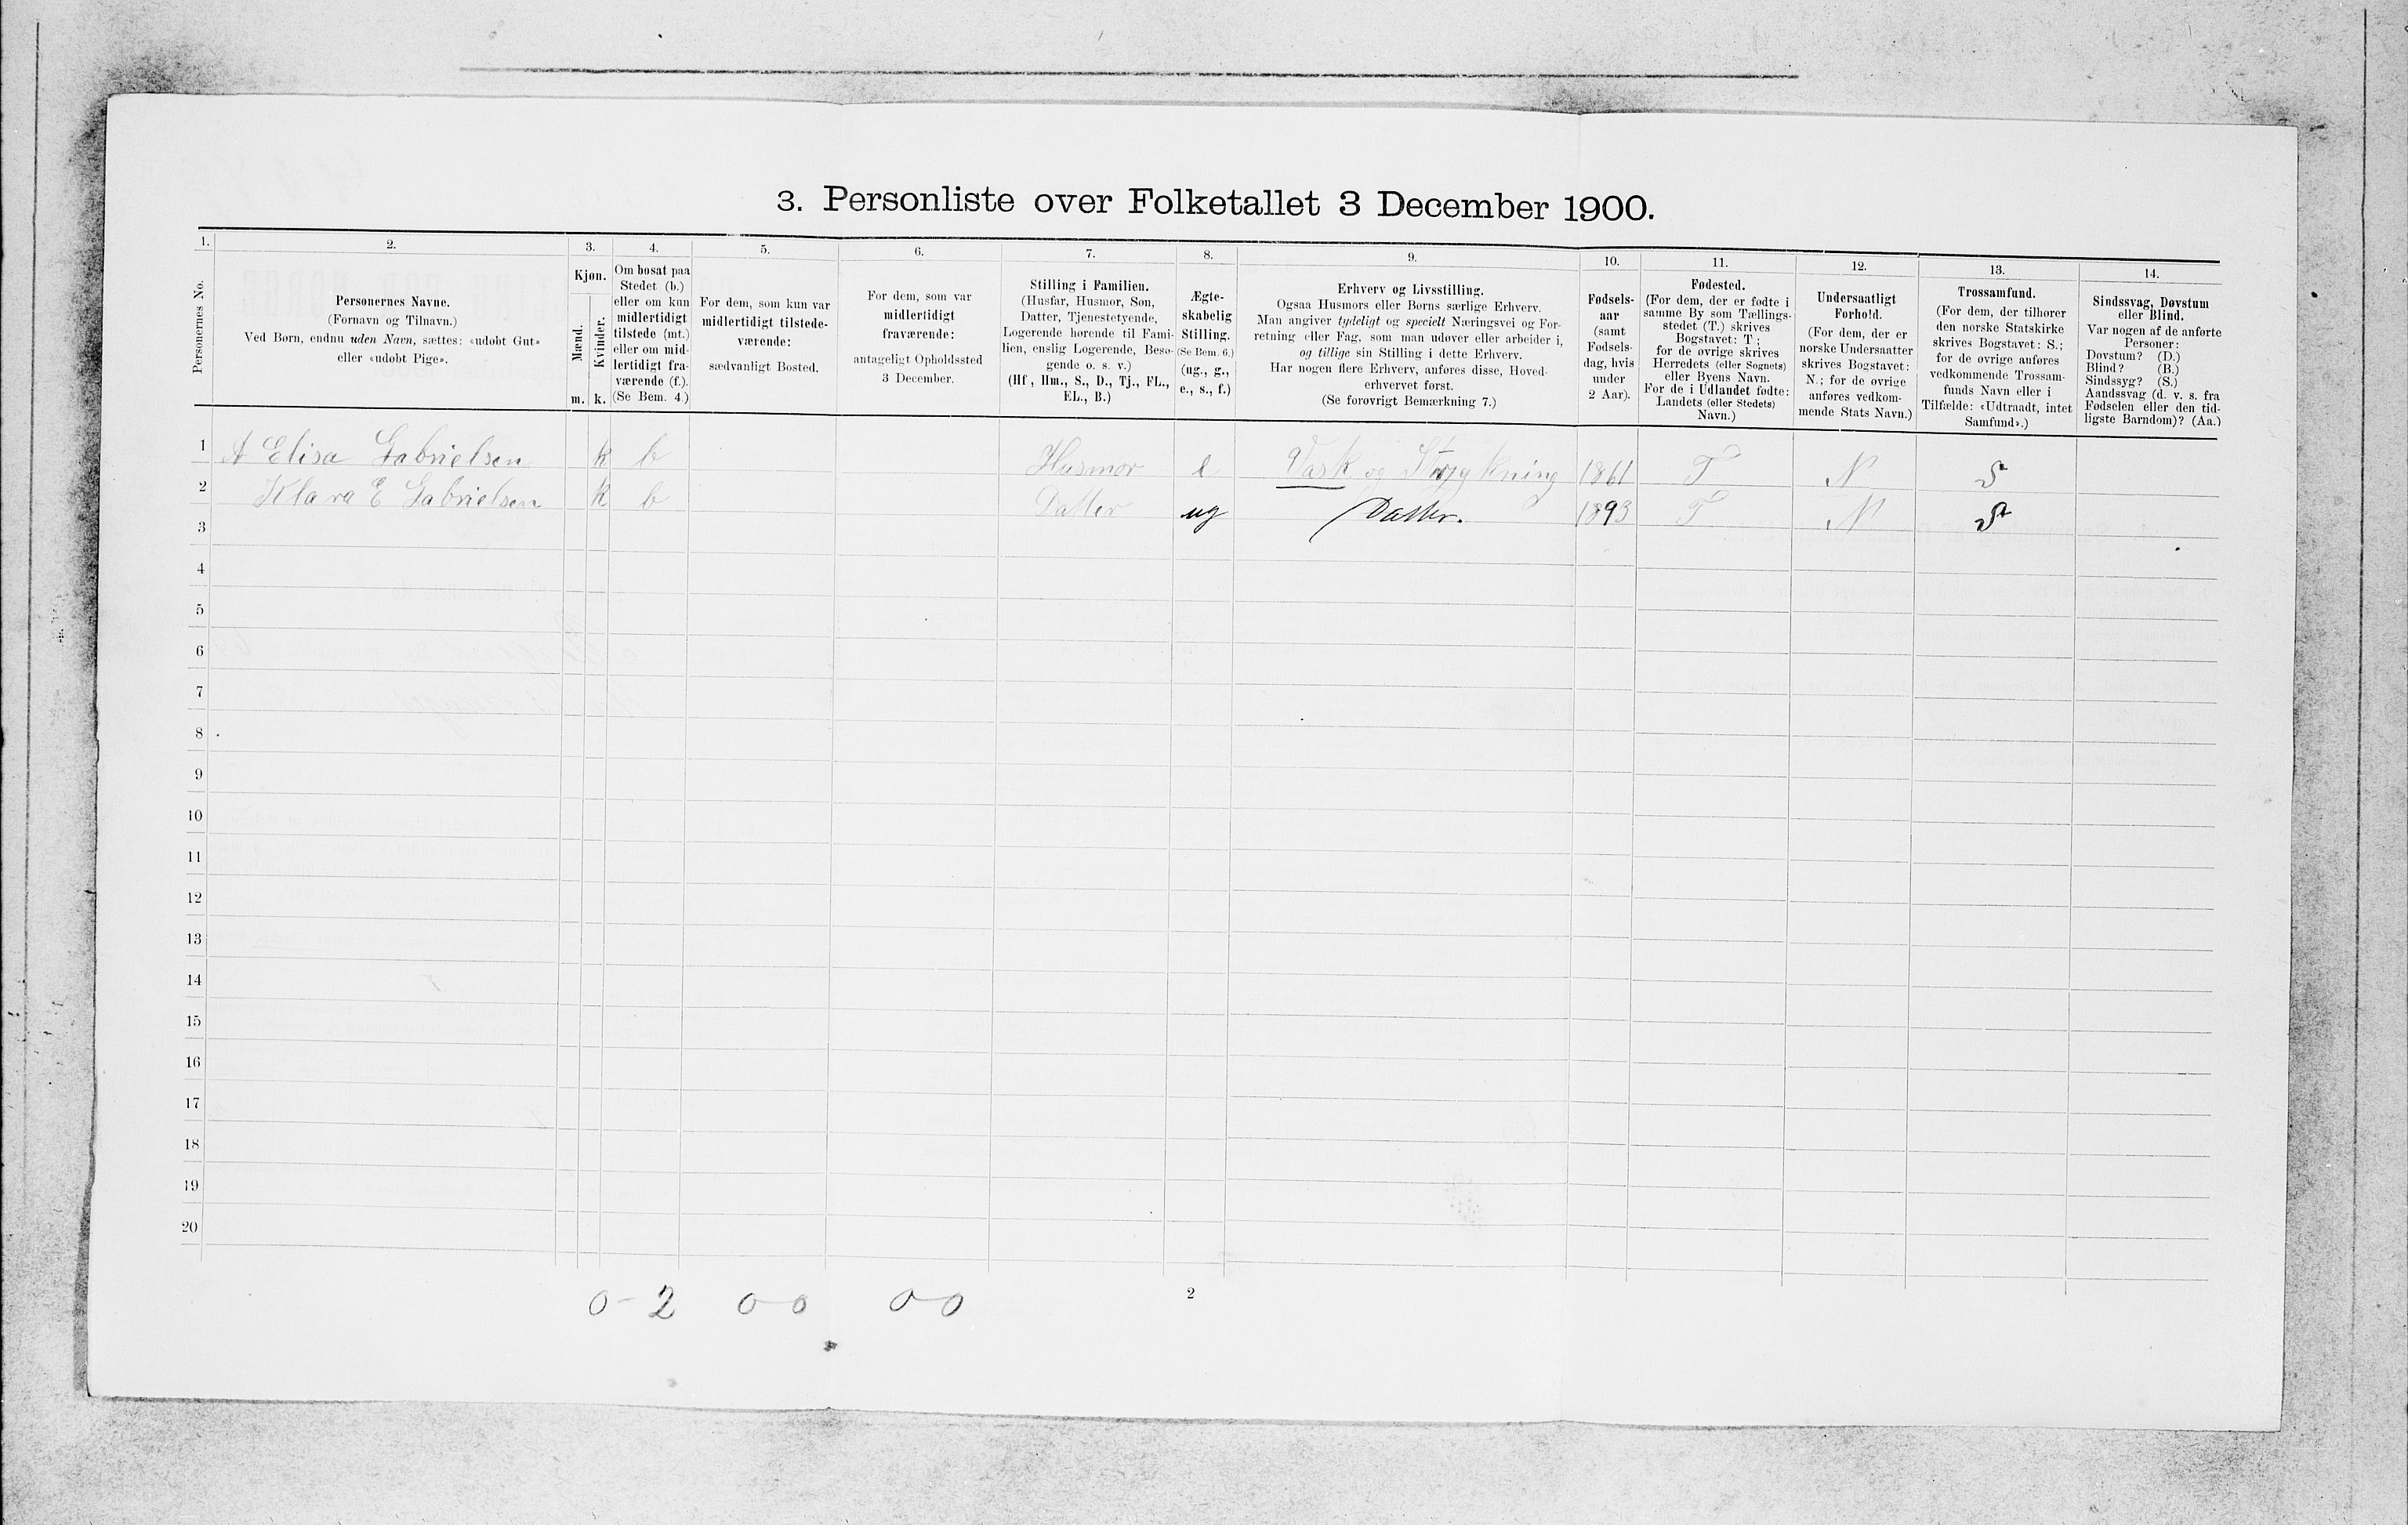 3. Personliste over Folketallet 3 December 1900.
1. 2. 3. 4. 5. 6. 7. 8. 9. 10. 11. 12. 13. 14.
Personernes No.
Personernes Navne.
(Fornavn og Tilnavn.)
Ved Børn, endnu uden Navn, sættes: «udøbt Gut»
eller «udøbt Pige».
Kjøn.
Mænd.
Kvinder.
m. k.
Om bosat paa
Stedet (b.)
eller om kun
midlertidigt
tilstede (mt.)
eller om mid-
lertidigt fra-
værende (f.).
(Se Bem. 4.)
For dem, som kun var
midlertidigt tilstede-
værende:
sædvanligt Bosted.
For dem, som var
midlertidigt
fraværende:
antageligt Opholdssted
3 December.
Stilling i Familien.
(Husfar, Husmor, Søn,
Datter, Tjenestetyende,
Logerende hørende til Fami-
lien, enslig Logerende, Besø-
gende o. s. v.)
(Hf., Hm., S., D., Tj., FL.,
EL., B.)
Ægte-
skabelig
Stilling.
(Se Bem. 6.)
(ug., g.,
e., s., f.)
Erhverv og Livsstilling.
Ogsaa Husmors eller Børns særlige Erhverv.
Man angiver tydeligt og specielt Næringsvei og For-
retning eller Fag, som man udøver eller arbeider i,
og tillige sin Stilling i dette Erhverv.
Har nogen flere Erhverv, anføres disse, Hoved-
erhvervet først.
(Se forøvrigt Bemærkning 7.)
Fødsels-
aar
(samt
Fødsels-
dag, hvis
under
2 Aar).
Fødested.
(For dem, der er fødte i
samme By som Tællings-
stedet (T.) skrives
Bogstavet: T ;
for de øvrige skrives
Herredets (eller Sognets)
eller Byens Navn.
For de i Udlandet fødte:
Landets (eller Stedets)
Navn.)
Undersaatligt
Forhold.
(For dem, der er
norske Undersaatter
skrives Bogstavet:
N.; for de øvrige
anføres vedkom-
mende Stats Navn.)
Trossamfund.
(For dem, der tilhører
den norske Statskirke
skrives Bogstavet: S.;
for de øvrige anføres
vedkommende Trossam-
funds Navn eller i
Tilfælde: «Udtraadt, intet
Samfund».)
Sindssvag, Døvstum
eller Blind.
Var nogen af de anførte
Personer:
Døvstum? (D.)
Blind? (B.)
Sindssyg? (S.)
Aandssvag (d. v. s. fra
Fødselen eller den tid-
ligste Barndom)? (Aa.)
1 A Elisa Gabrielsen k b Husmor e Vask og Strygkning 1861 T N S
2 Klara E Gabrielsen k b Datter ug Datter. 1893 T N S
3
4
5
6
7
8
9
10
11
12
13
14
15
16
17
18
19
20
0-2 0-0 0-0
2